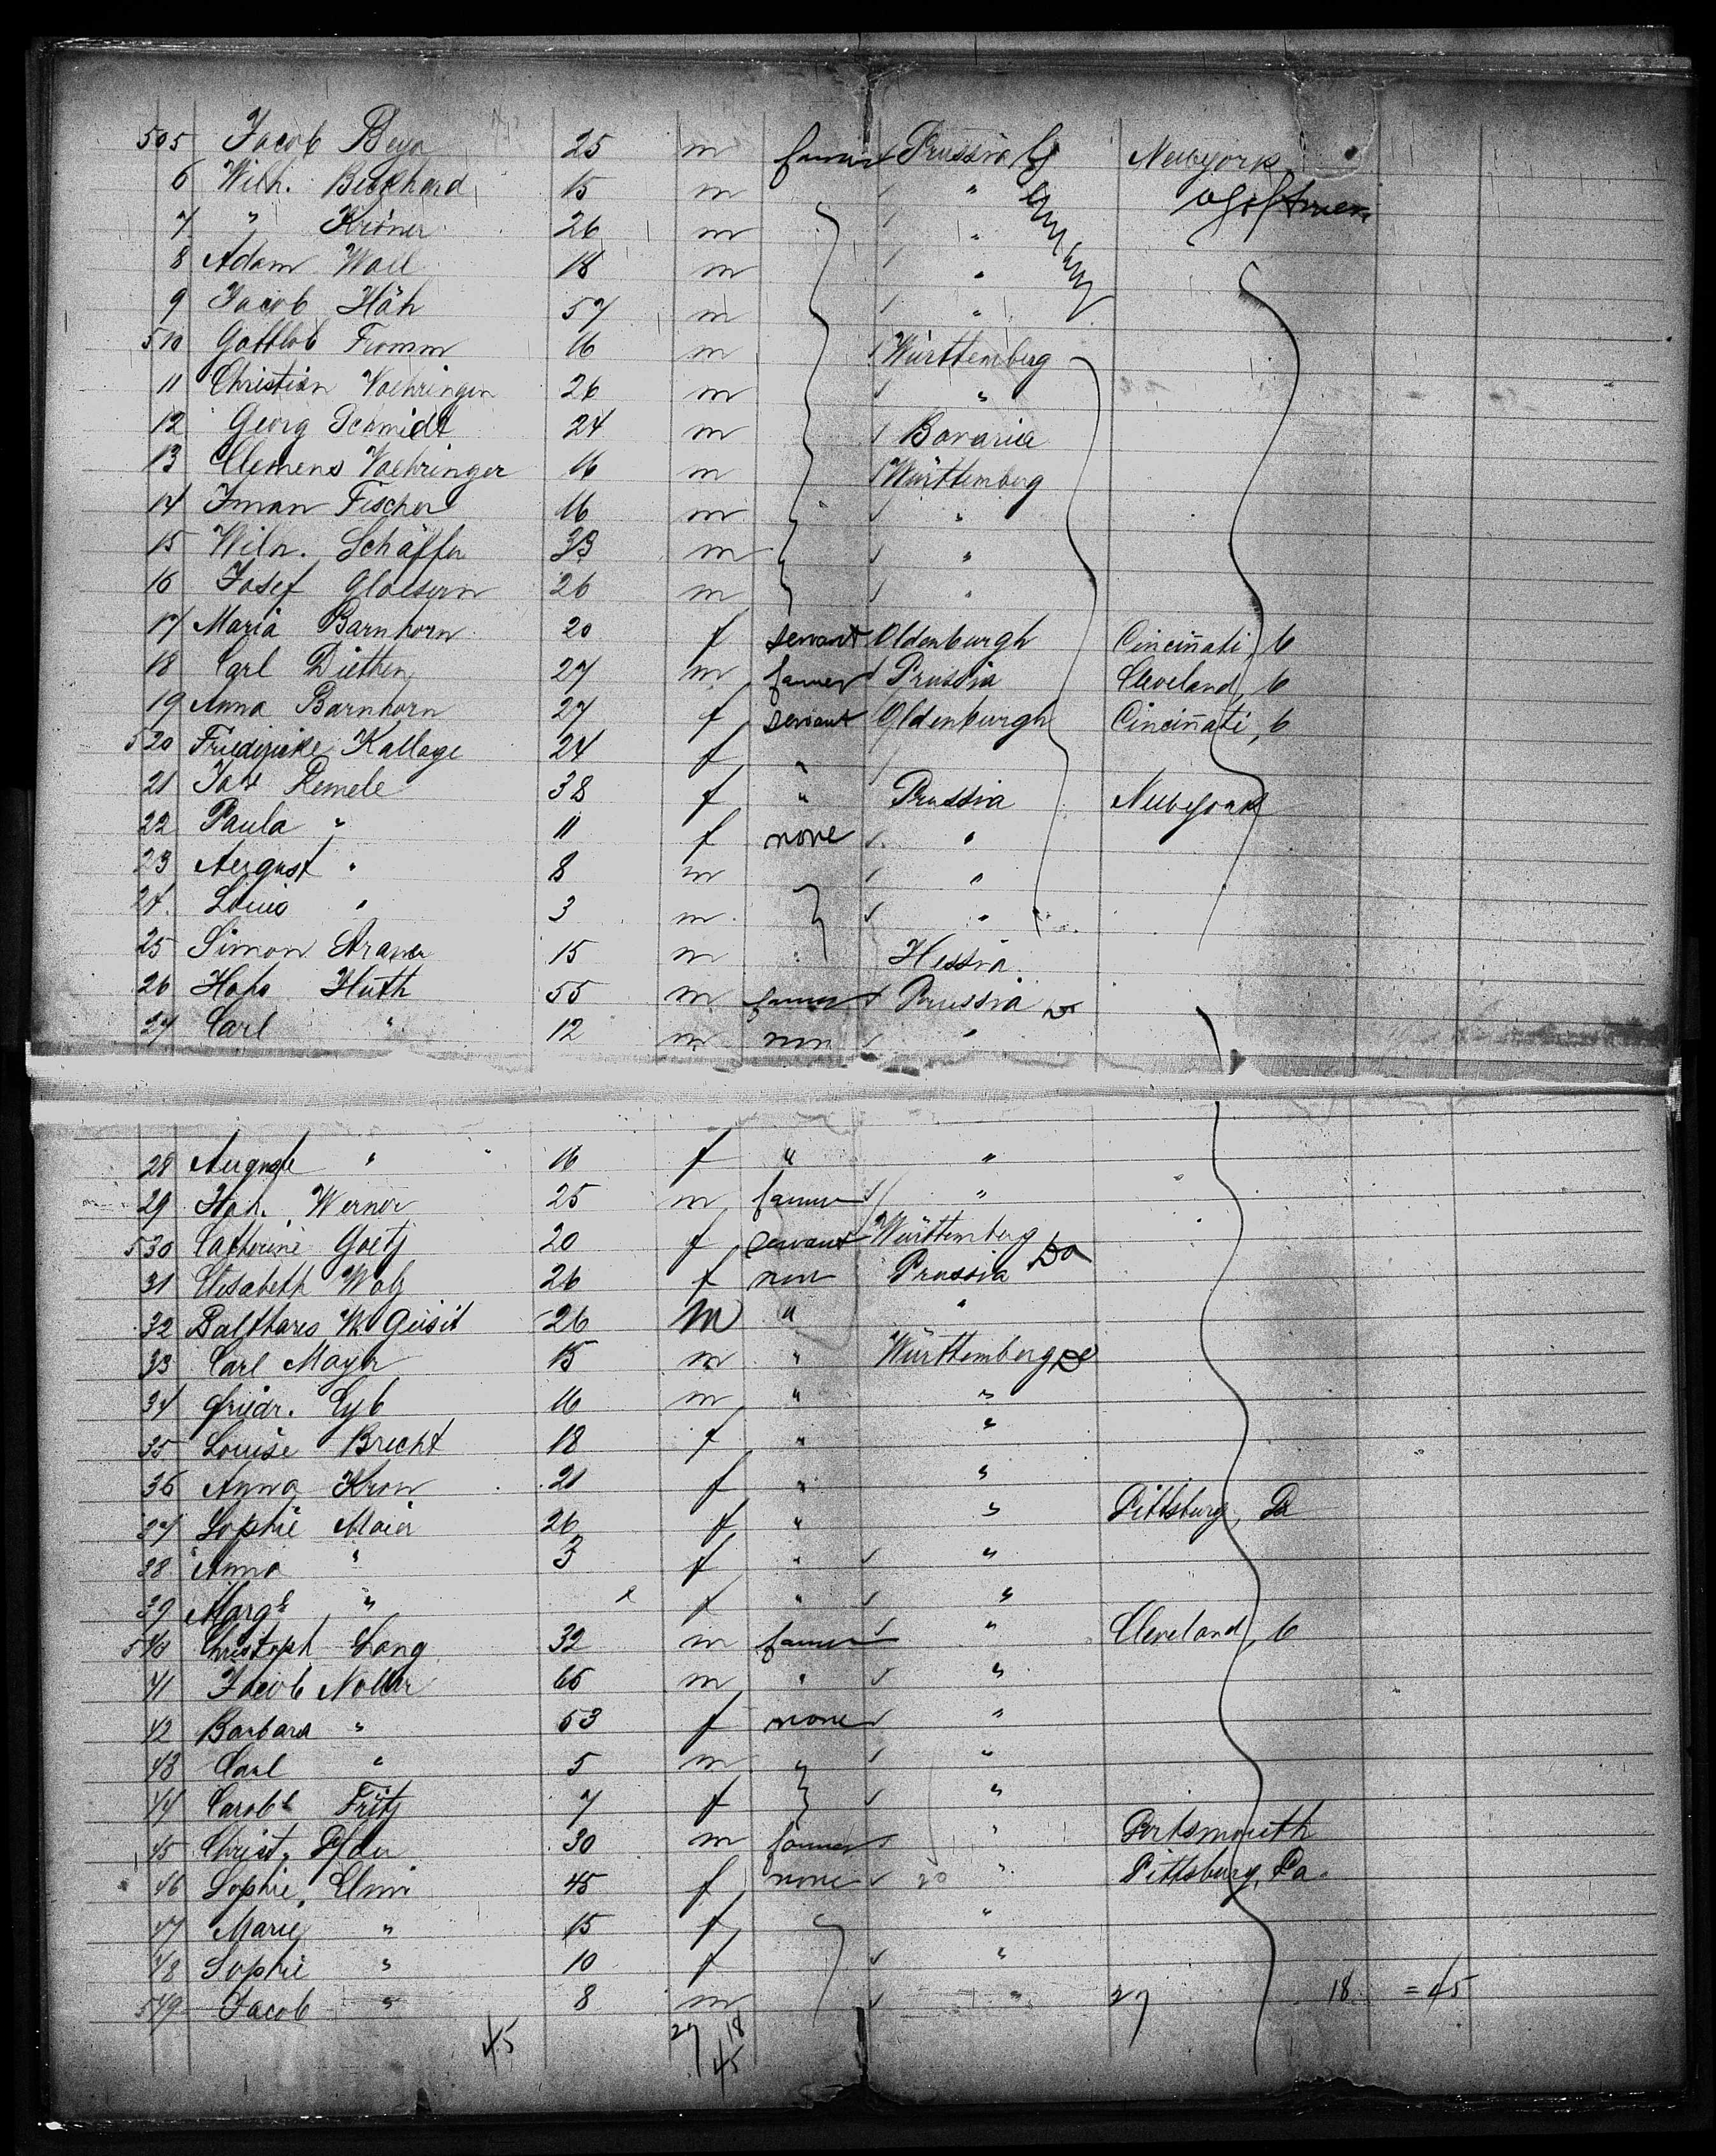 505 Jacob Beyer 25 m farmer Prussia Germany Newyork
6 Wilh. Burkhard 15 m "
7 " Kröner 26 m "
8 Adam Wall 18 m "
9 Jacob Häh 57 m "
510 Gottlob Fromm 16 m Württemberg
11 Christian Voehringer 26 m "
12 Georg Schmidt 24 m Bavaria
13 Clemens Voehringer 16 m Württemberg
14 Fischer 16 m "
15 Wilh. Schäffer 33 m "
16 Josef 26 m "
17 Maria Barnhorn 20 f servant Oldenburgh Cincinnati, O
18 Carl Diethen 27 m farmer Prussia Cleveland, O
19 Anna Barnhorn 27 f servant Oldenburgh Cincinnati, O
520 Friederike Kallage 24 f "
21 Remele 38 f " Prussia Newyork
22 Paula " 11 f none "
23 August " 8 m "
24 Louis " 3 m "
25 Simon 15 m Hessia
26 Huth 55 m farmer Prussia
27 Carl " 12 m non "
28 Auguste " 16 f " "
29 Werner 25 m farmer "
530 Catherine Goetz 20 f servant Württemberg
31 Elisabeth Wolf 26 f non Prussia Do
32 26 m " "
33 Carl Mayer 15 m " Württemberg Do
34 Friedr. Eyb 16 m " "
35 Louise Brecht 18 f " "
36 Anna Kron 21 f " "
37 Sophie Maier 26 f " " Pittsburg, Pa
38 Anna " 3 f " "
39 Margt " f " "
540 Christoph Lang 32 m farmer " Cleveland, O
41 Jacob Noller 65 m " "
42 Barbara " 53 f none "
43 Carl " 5 m " "
44 Fritz 7 f "
45 Christ. 30 m farmer " Portsmouth
46 Sophie 45 f none 20 " Pittsburg, Pa.
47 Marie " 15 f "
48 Sophie " 10 f "
549 Jacob " 8 m " 27 18 = 45
45 27 18
45